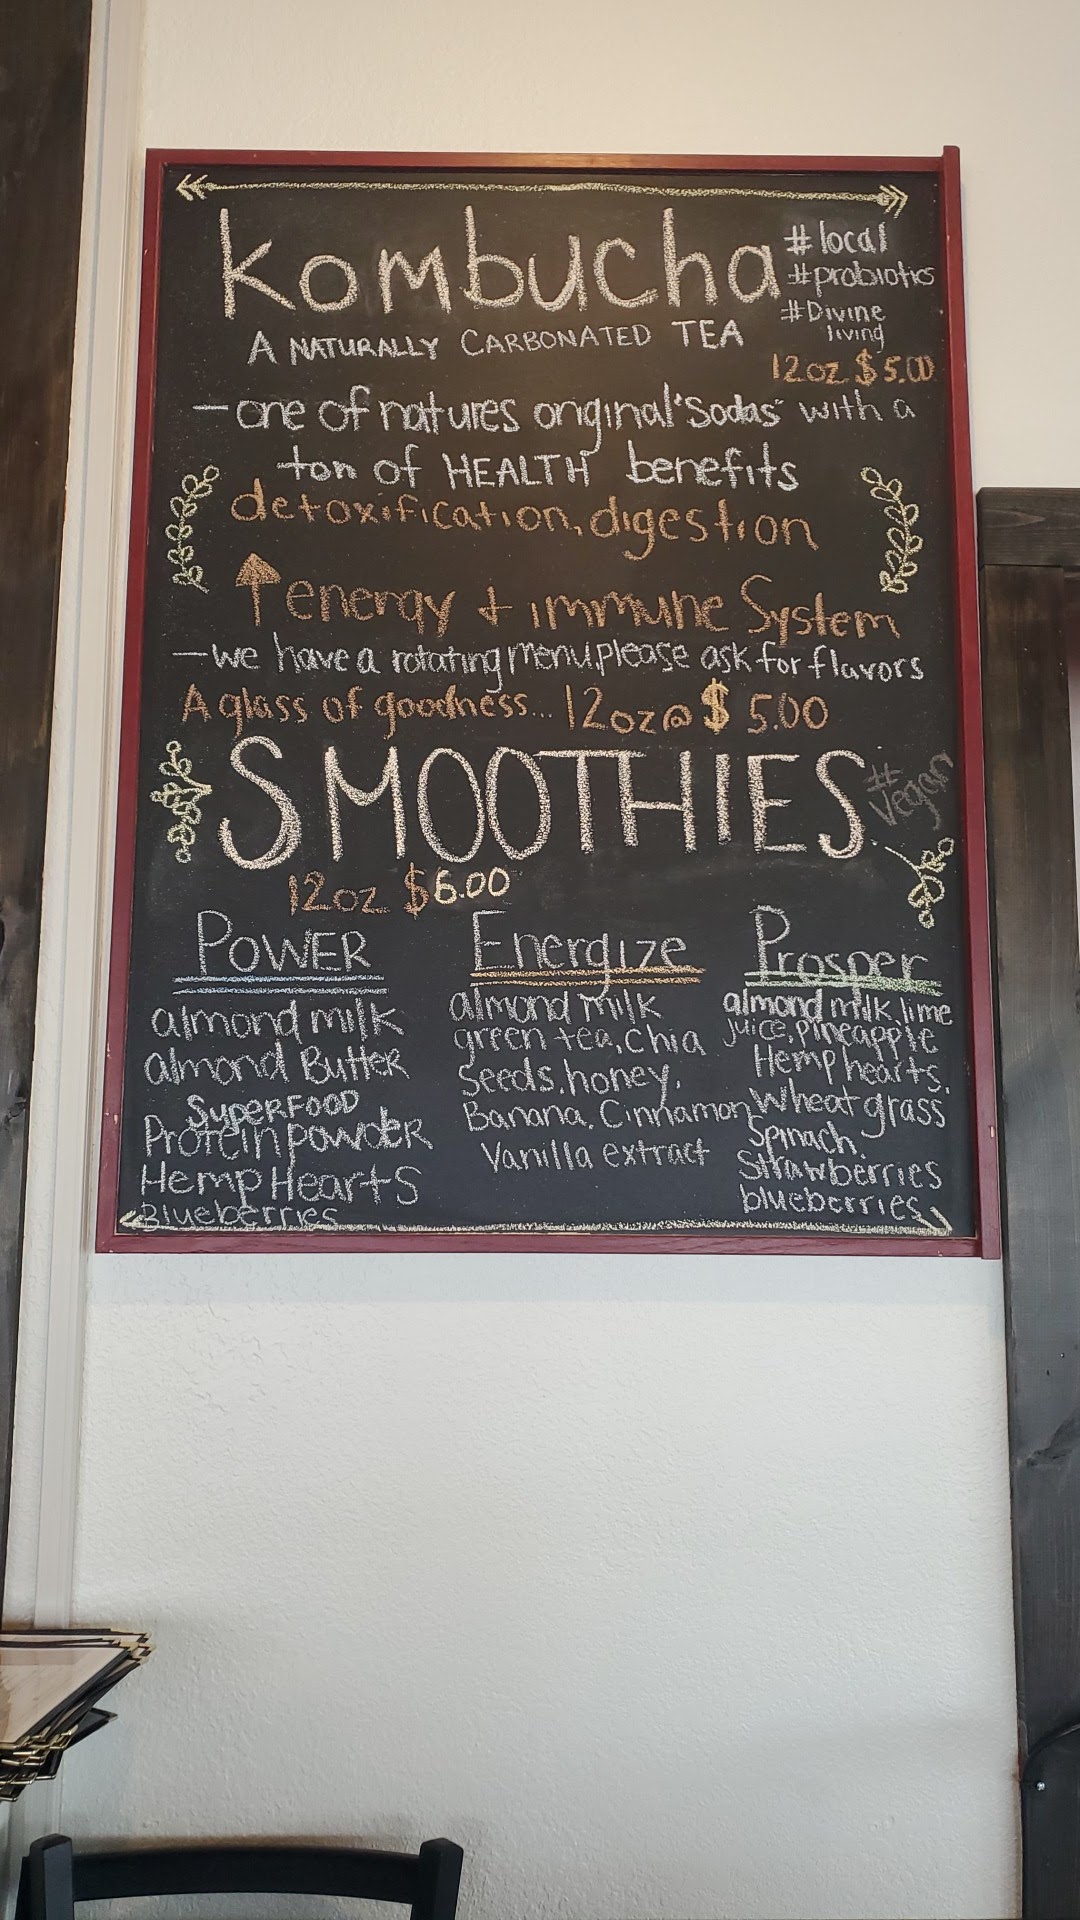 kombucha
#local
#probiotics
#Divine
living
A NATURALLY CARBONATED TEA
12oz $5.00
-one of natures original "Sodas" with a
ton of HEALTH benefits
detoxification, digestion
↑ energy + immune System
-we have a rotating menu, please ask for flavors
A glass of goodness... 12oz @ $5.00
SMOOTHIES
#vegan
12oz $6.00
POWER
almond milk
almond Butter
SUPERFOOD
Protein powder
Hemp Hearts
Blueberries
Energize
almond milk
green tea, chia
seeds, honey,
Banana, Cinnamon
Vanilla extract
Prosper
almond milk, lime
juice, pineapple
Hemp hearts,
Wheat grass
Spinach,
Strawberries
blueberries